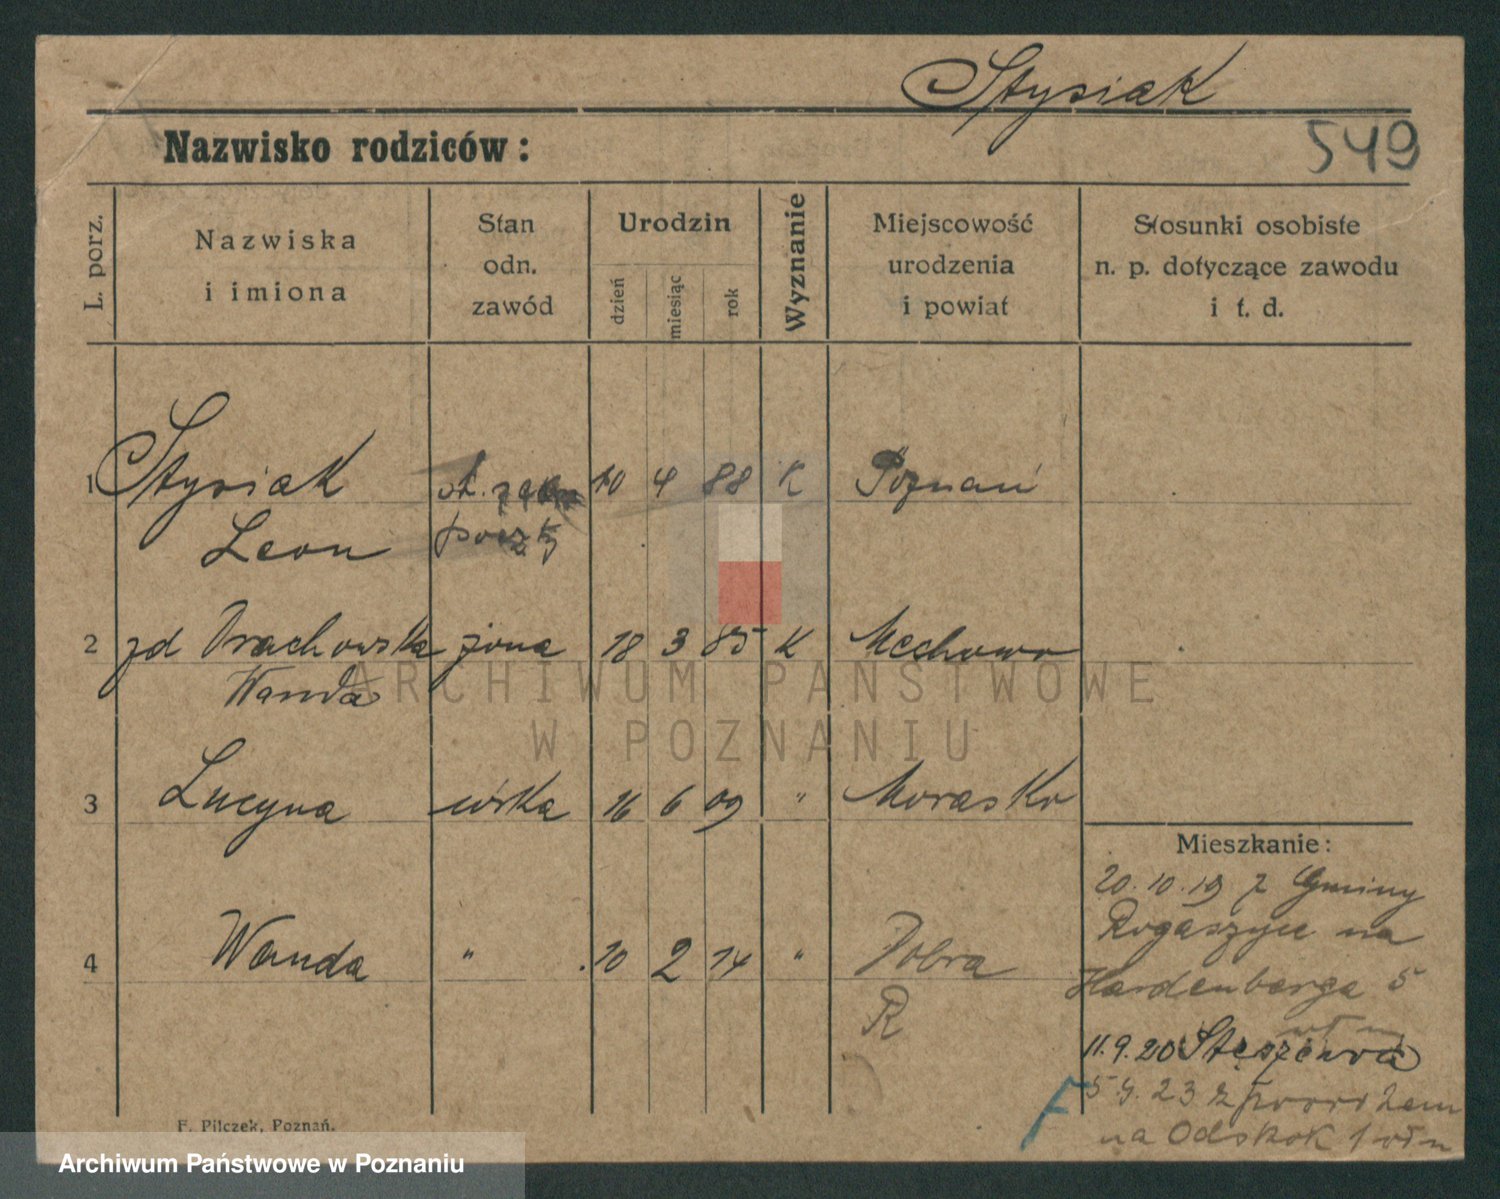 Stysiak
Nazwisko rodziców:
549
L. porz.
Nazwiska
i imiona
Stan
odn.
zawód
Urodzin
dzień
miesiąc
rok
Wyznanie
Miejscowość
urodzenia
i powiat
Stosunki osobiste
n. p. dotyczące zawodu
i t. d.
1 Stysiak st. 10 4 88 K Poznań
Leon poczty
2 zd Drachowska żona 18 3 85 K Mechowo
Wanda
3 Lucyna córka 16 6 09 " Morasko
4 Wanda " 10 2 14 " Dobra
R
Mieszkanie:
20.10.19 z Gminy
Rogaszyce na
Hardenberga 5
11.9.20 Stęszewa
23 z
na Odskok 1
F. Pilczek, Poznań.
ARCHIWUM PAŃSTWOWE
W POZNANIU
Archiwum Państwowe w Poznaniu